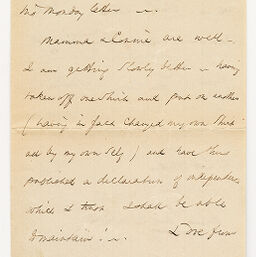 Monday letter —.
Mamma & Connie are well —
I am getting slowly better — having
taken off one shirt and put on another
(having in fact changed my own shirt
all by my own self) and have thus
published a declaration of independence
which I shall be able
to maintain! —.
Love from